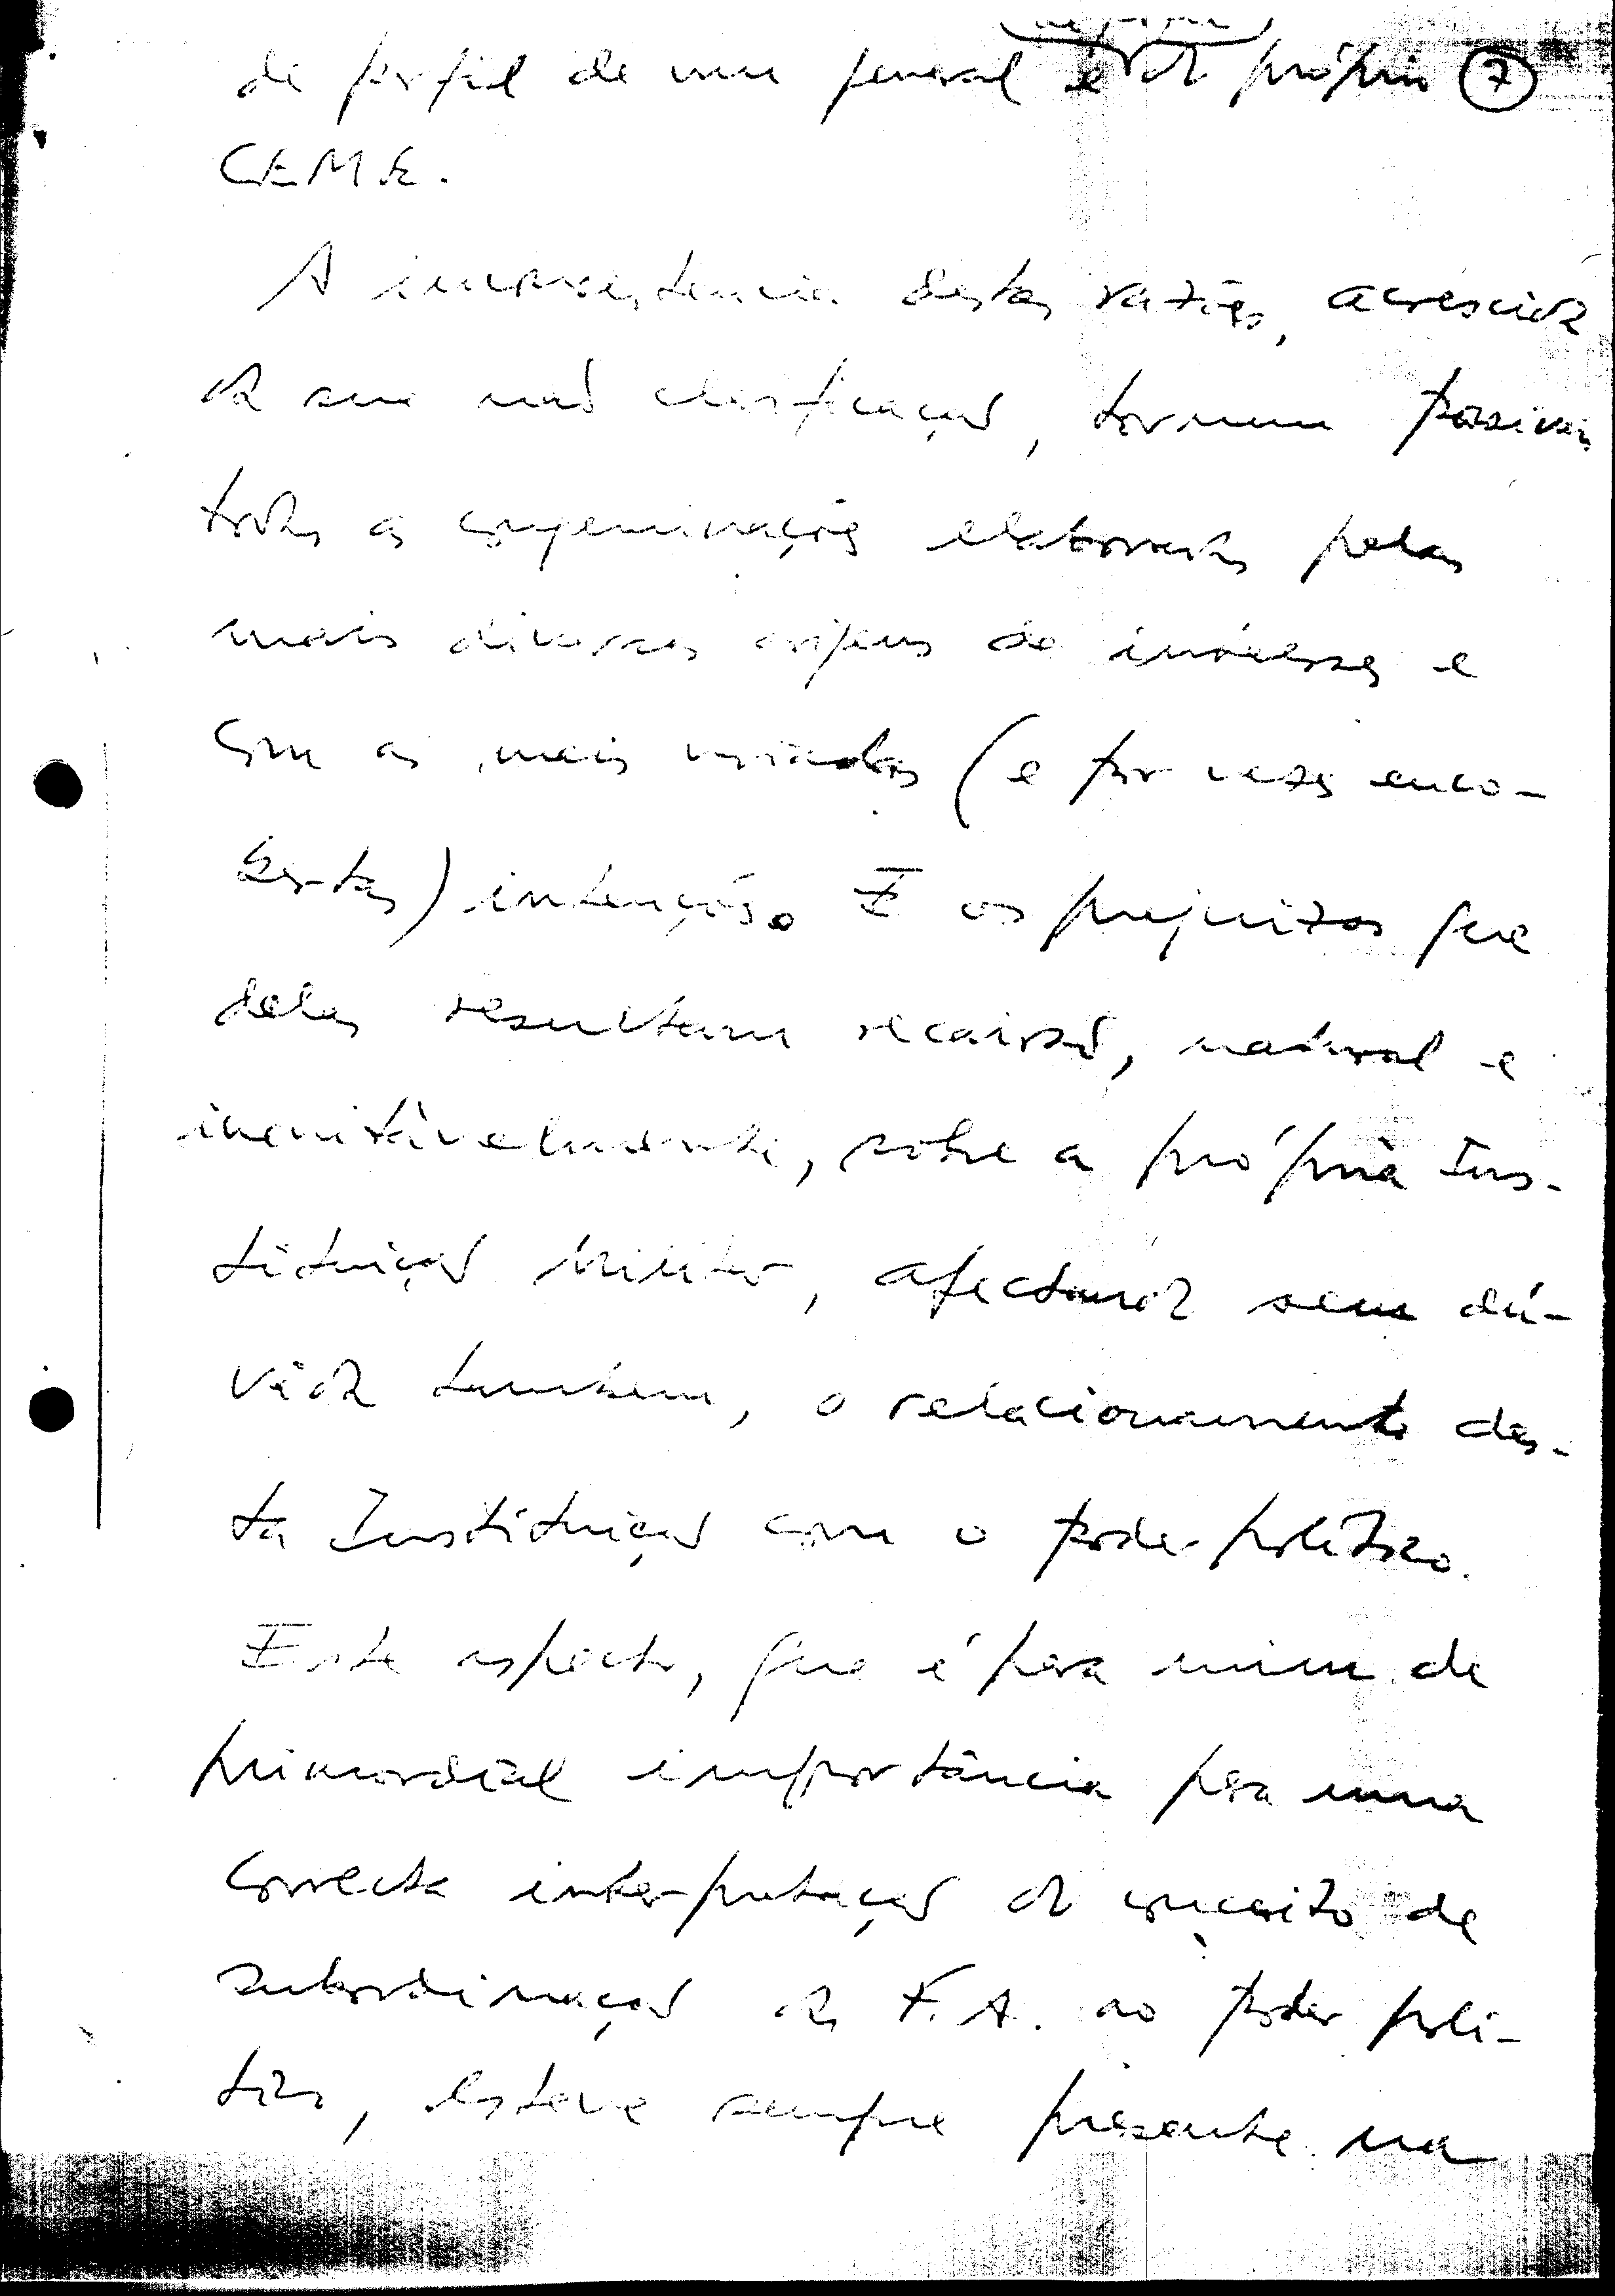 de perfil de um general e do próprio 7
CEME.
A inconsistencia destas razões, acrescida
da sua não clarificação, tornam possiveis
todas as congeminações elaboradas pelas
mais diversas origens de interesses e
com as mais variadas (e por vezes enco-
bertas) intenções. E os prejuizos que
delas resultam recairão, natural e
inevitàvelmente, sobre a própria Ins-
tituição Militar, afectando sem dú-
vida tambem, o relacionamento des-
ta Instituição com o poder politico.
Este aspecto, que é para mim de
primordial importância para uma
correcta interpretação do conceito de
subordinação das F.A. ao poder poli-
tico, esteve sempre presente na